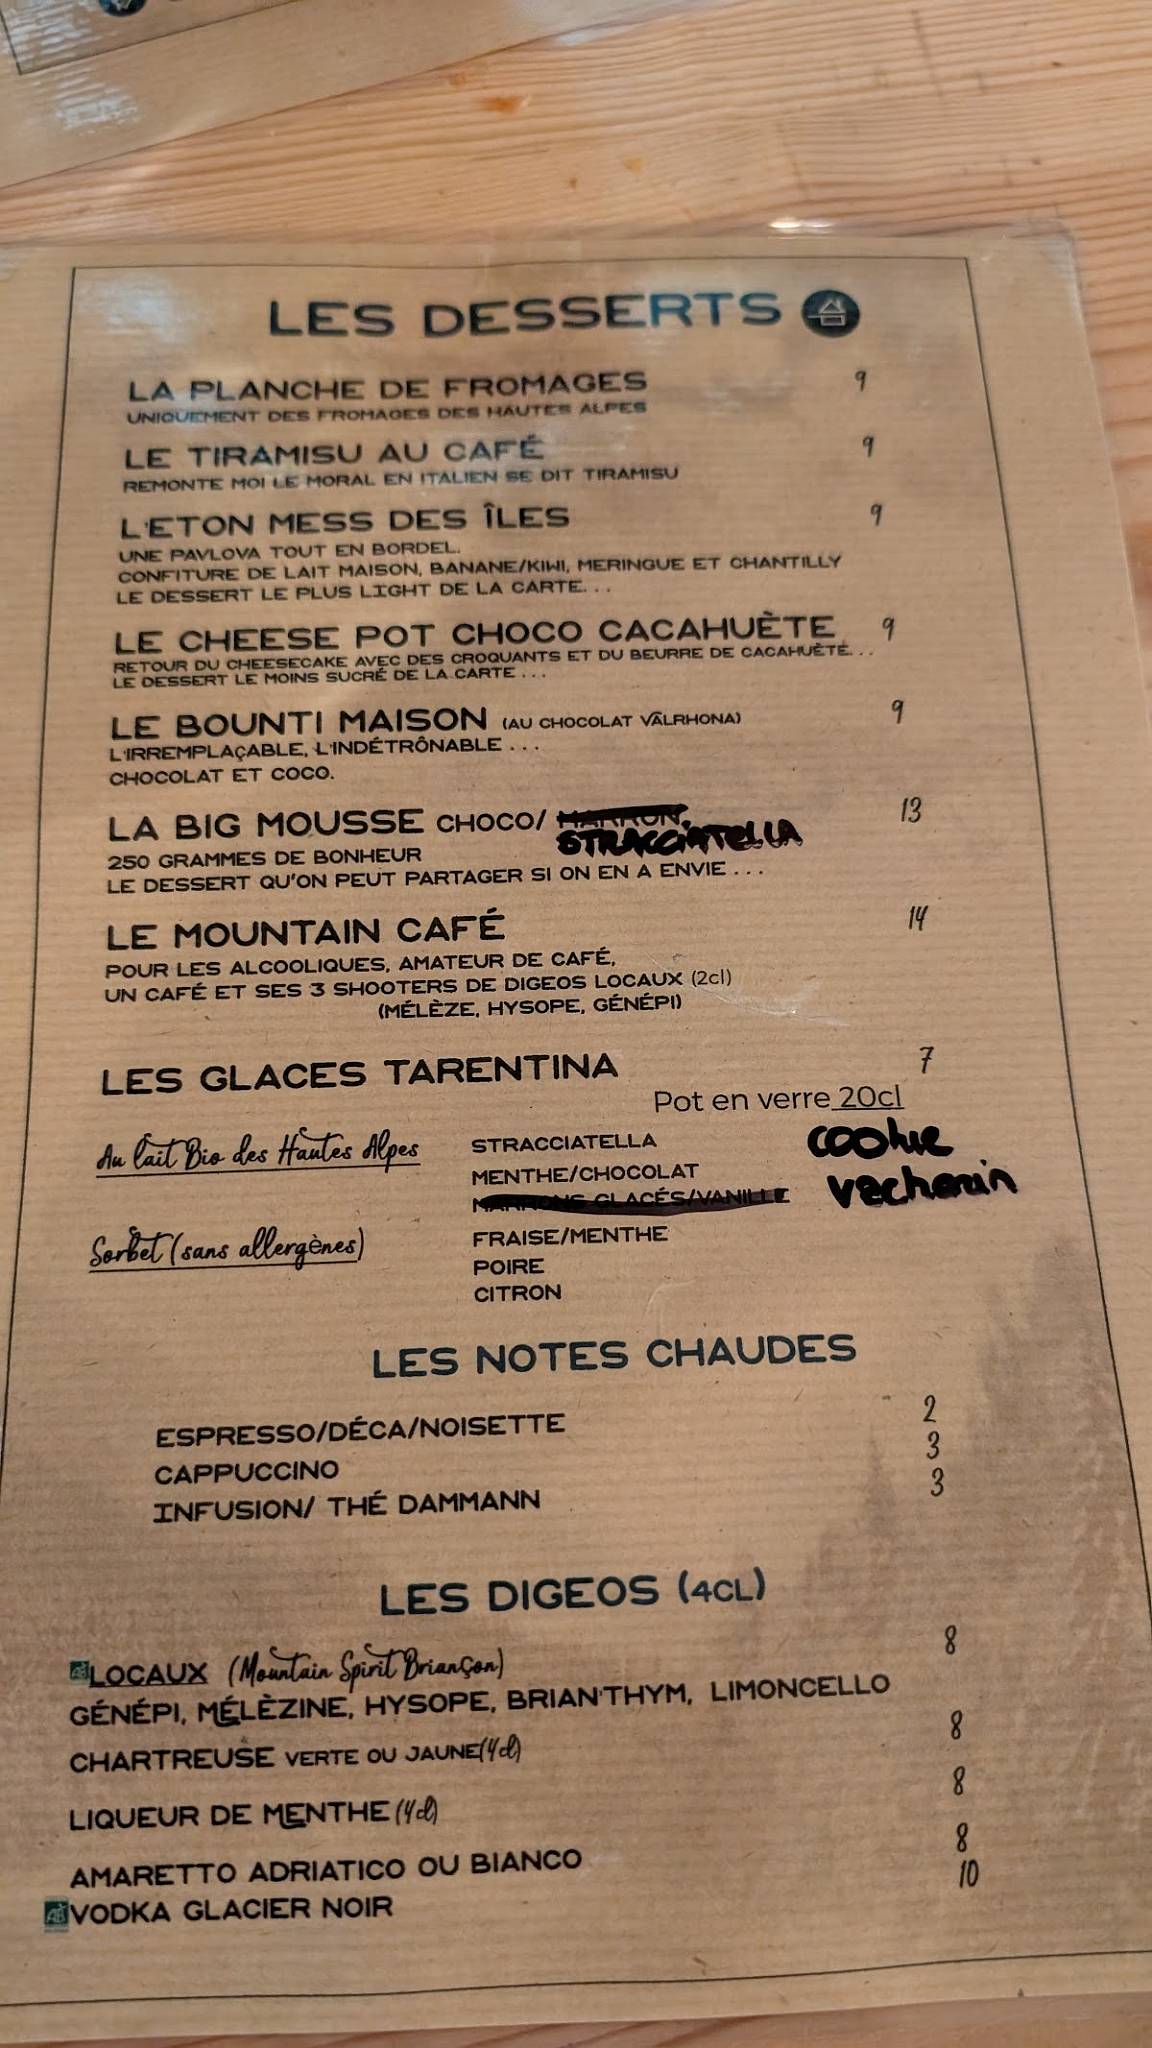 LES DESSERTS
LA PLANCHE DE FROMAGES 9
UNIQUEMENT DES FROMAGES DES HAUTES ALPES
LE TIRAMISU AU CAFÉ 9
REMONTE MOI LE MORAL EN ITALIEN SE DIT TIRAMISU
L'ETON MESS DES ÎLES 9
UNE PAVLOVA TOUT EN BORDEL.
CONFITURE DE LAIT MAISON, BANANE/KIWI, MERINGUE ET CHANTILLY
LE DESSERT LE PLUS LIGHT DE LA CARTE...
LE CHEESE POT CHOCO CACAHUÈTE 9
RETOUR DU CHEESECAKE AVEC DES CROQUANTS ET DU BEURRE DE CACAHUÈTE...
LE DESSERT LE MOINS SUCRÉ DE LA CARTE ...
LE BOUNTI MAISON (AU CHOCOLAT VALRHONA) 9
L'IRREMPLAÇABLE, L'INDÉTRÔNABLE ...
CHOCOLAT ET COCO.
LA BIG MOUSSE CHOCO/ MARRON, 13
STRACCIATELLA
250 GRAMMES DE BONHEUR
LE DESSERT QU'ON PEUT PARTAGER SI ON EN A ENVIE ...
LE MOUNTAIN CAFÉ 14
POUR LES ALCOOLIQUES, AMATEUR DE CAFÉ,
UN CAFÉ ET SES 3 SHOOTERS DE DIGEOS LOCAUX (2cl)
(MÉLÈZE, HYSOPE, GÉNÉPI)
LES GLACES TARENTINA 7
Pot en verre 20cl
Au lait Bio des Hautes Alpes STRACCIATELLA cookie
MENTHE/CHOCOLAT vacherin
MARRONS GLACÉS/VANILLE
Sorbet (sans allergènes) FRAISE/MENTHE
POIRE
CITRON
LES NOTES CHAUDES
ESPRESSO/DÉCA/NOISETTE 2
CAPPUCCINO 3
INFUSION/ THÉ DAMMANN 3
LES DIGEOS (4CL)
AB LOCAUX (Mountain Spirit Briançon) 8
GÉNÉPI, MÉLÈZINE, HYSOPE, BRIAN'THYM, LIMONCELLO
CHARTREUSE VERTE OU JAUNE(4cl) 8
LIQUEUR DE MENTHE (4cl) 8
AMARETTO ADRIATICO OU BIANCO 8
AB VODKA GLACIER NOIR 10